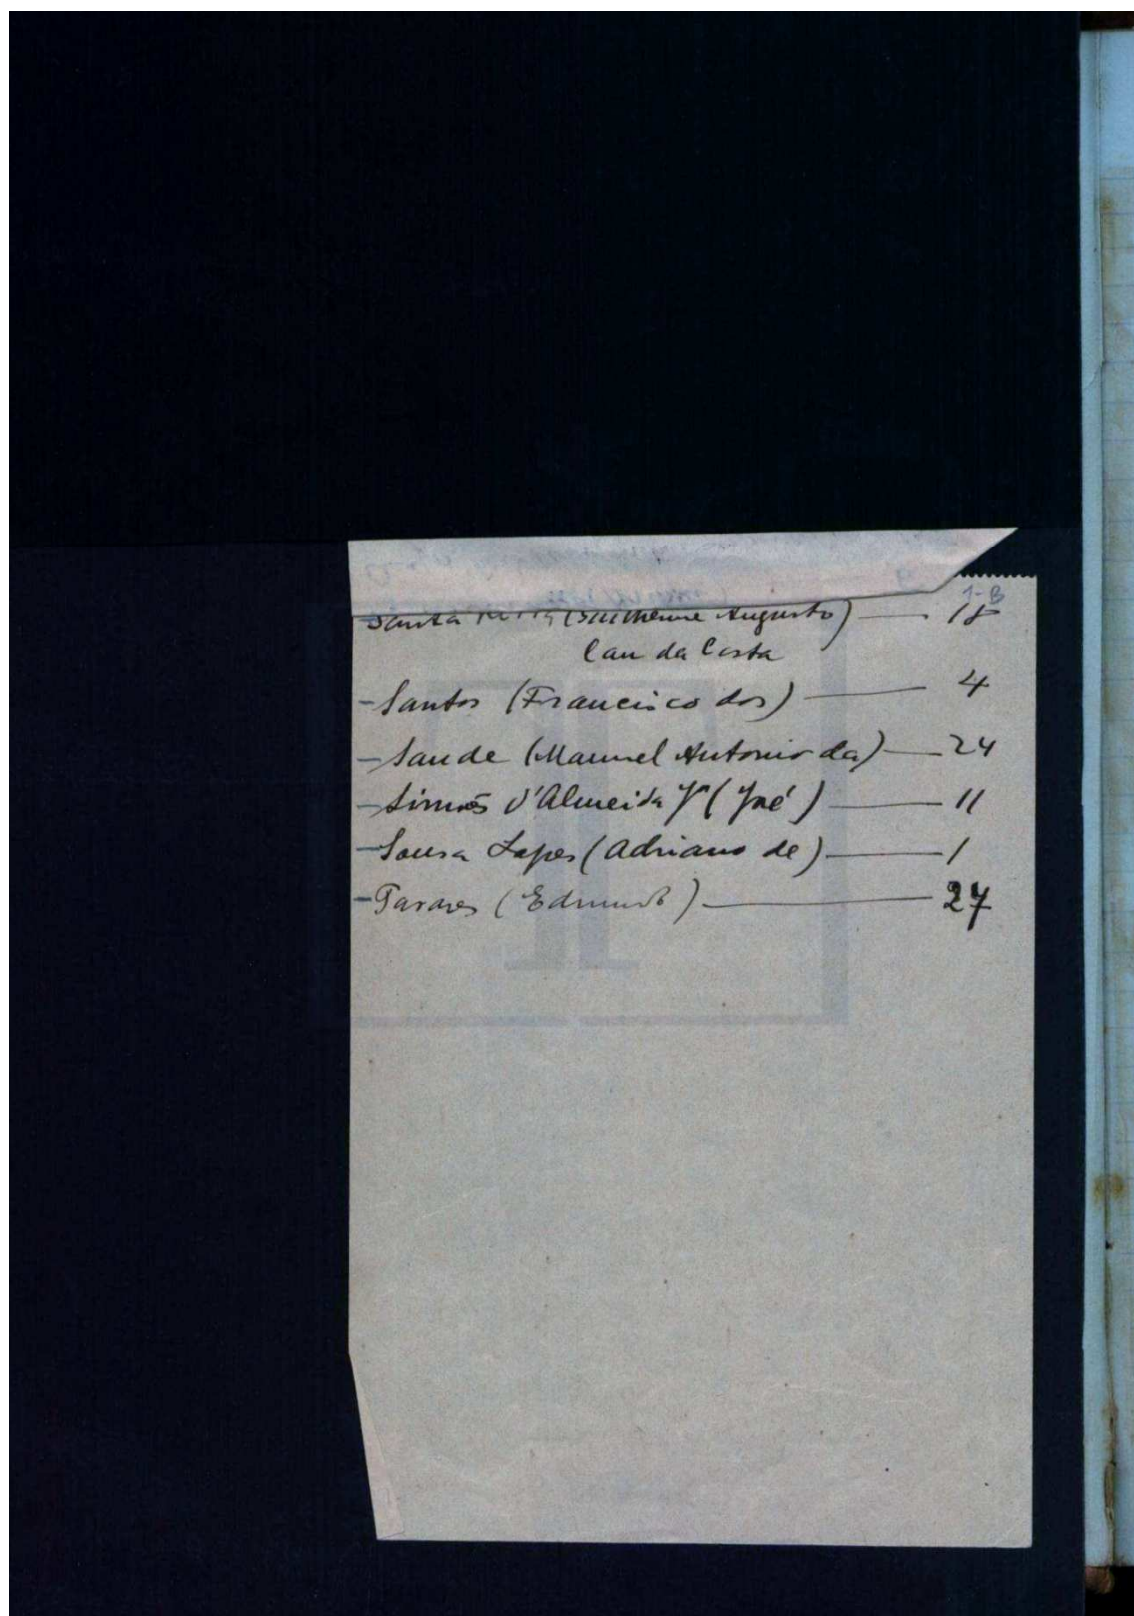 1-B
Santa (Guilherme Augusto) — 18
Cau da Costa
- Santos (Francisco dos) — 4
- Saude (Manuel Antonio da) — 24
- Simões d'Almeida Jor (José) — 11
- Sousa Lopes (Adriano de) — 1
- Tavares (Edmundo) — 27